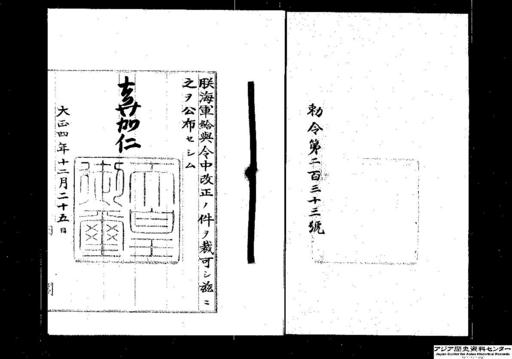 勅令第二百三十三號
朕海軍給與令中改正ノ件ヲ裁可シ茲ニ
之ヲ公布セシム
嘉仁
天皇御璽
大正四年十二月二十五日
アジア歴史資料センター
Japan Center for Asian Historical Records